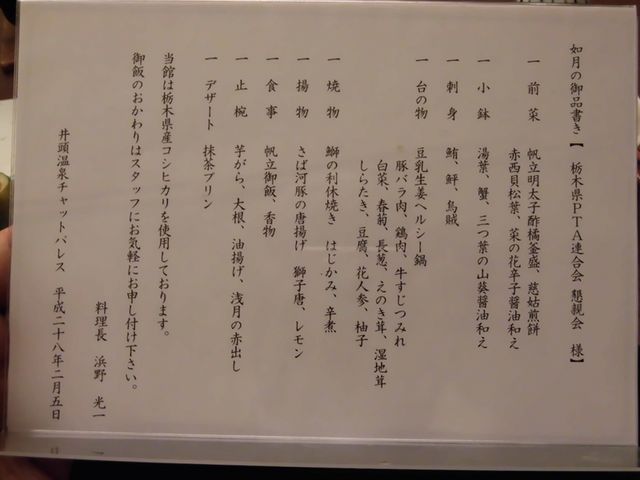 如月の御品書き【 栃木県PTA連合会 懇親会 様】
一 前菜 帆立明太子酢橘釜盛、慈姑煎餅
赤西貝松葉、菜の花辛子醤油和え
一 小鉢 湯葉、蟹、三つ葉の山葵醤油和え
一 刺身 鮪、鮃、烏賊
一 台の物 豆乳生姜ヘルシー鍋
豚バラ肉、鶏肉、牛すじつみれ
白菜、春菊、長葱、えのき茸、湿地茸
しらたき、豆腐、花人参、柚子
一 焼物 鰤の利休焼き はじかみ、辛煮
一 揚物 さば河豚の唐揚げ 獅子唐、レモン
一 食事 帆立御飯、香物
一 止椀 芋がら、大根、油揚げ、浅月の赤出し
一 デザート 抹茶プリン
当館は栃木県産コシヒカリを使用しております。
御飯のおかわりはスタッフにお気軽にお申し付け下さい。
料理長 浜野 光一
井頭温泉チャットパレス 平成二十八年二月五日